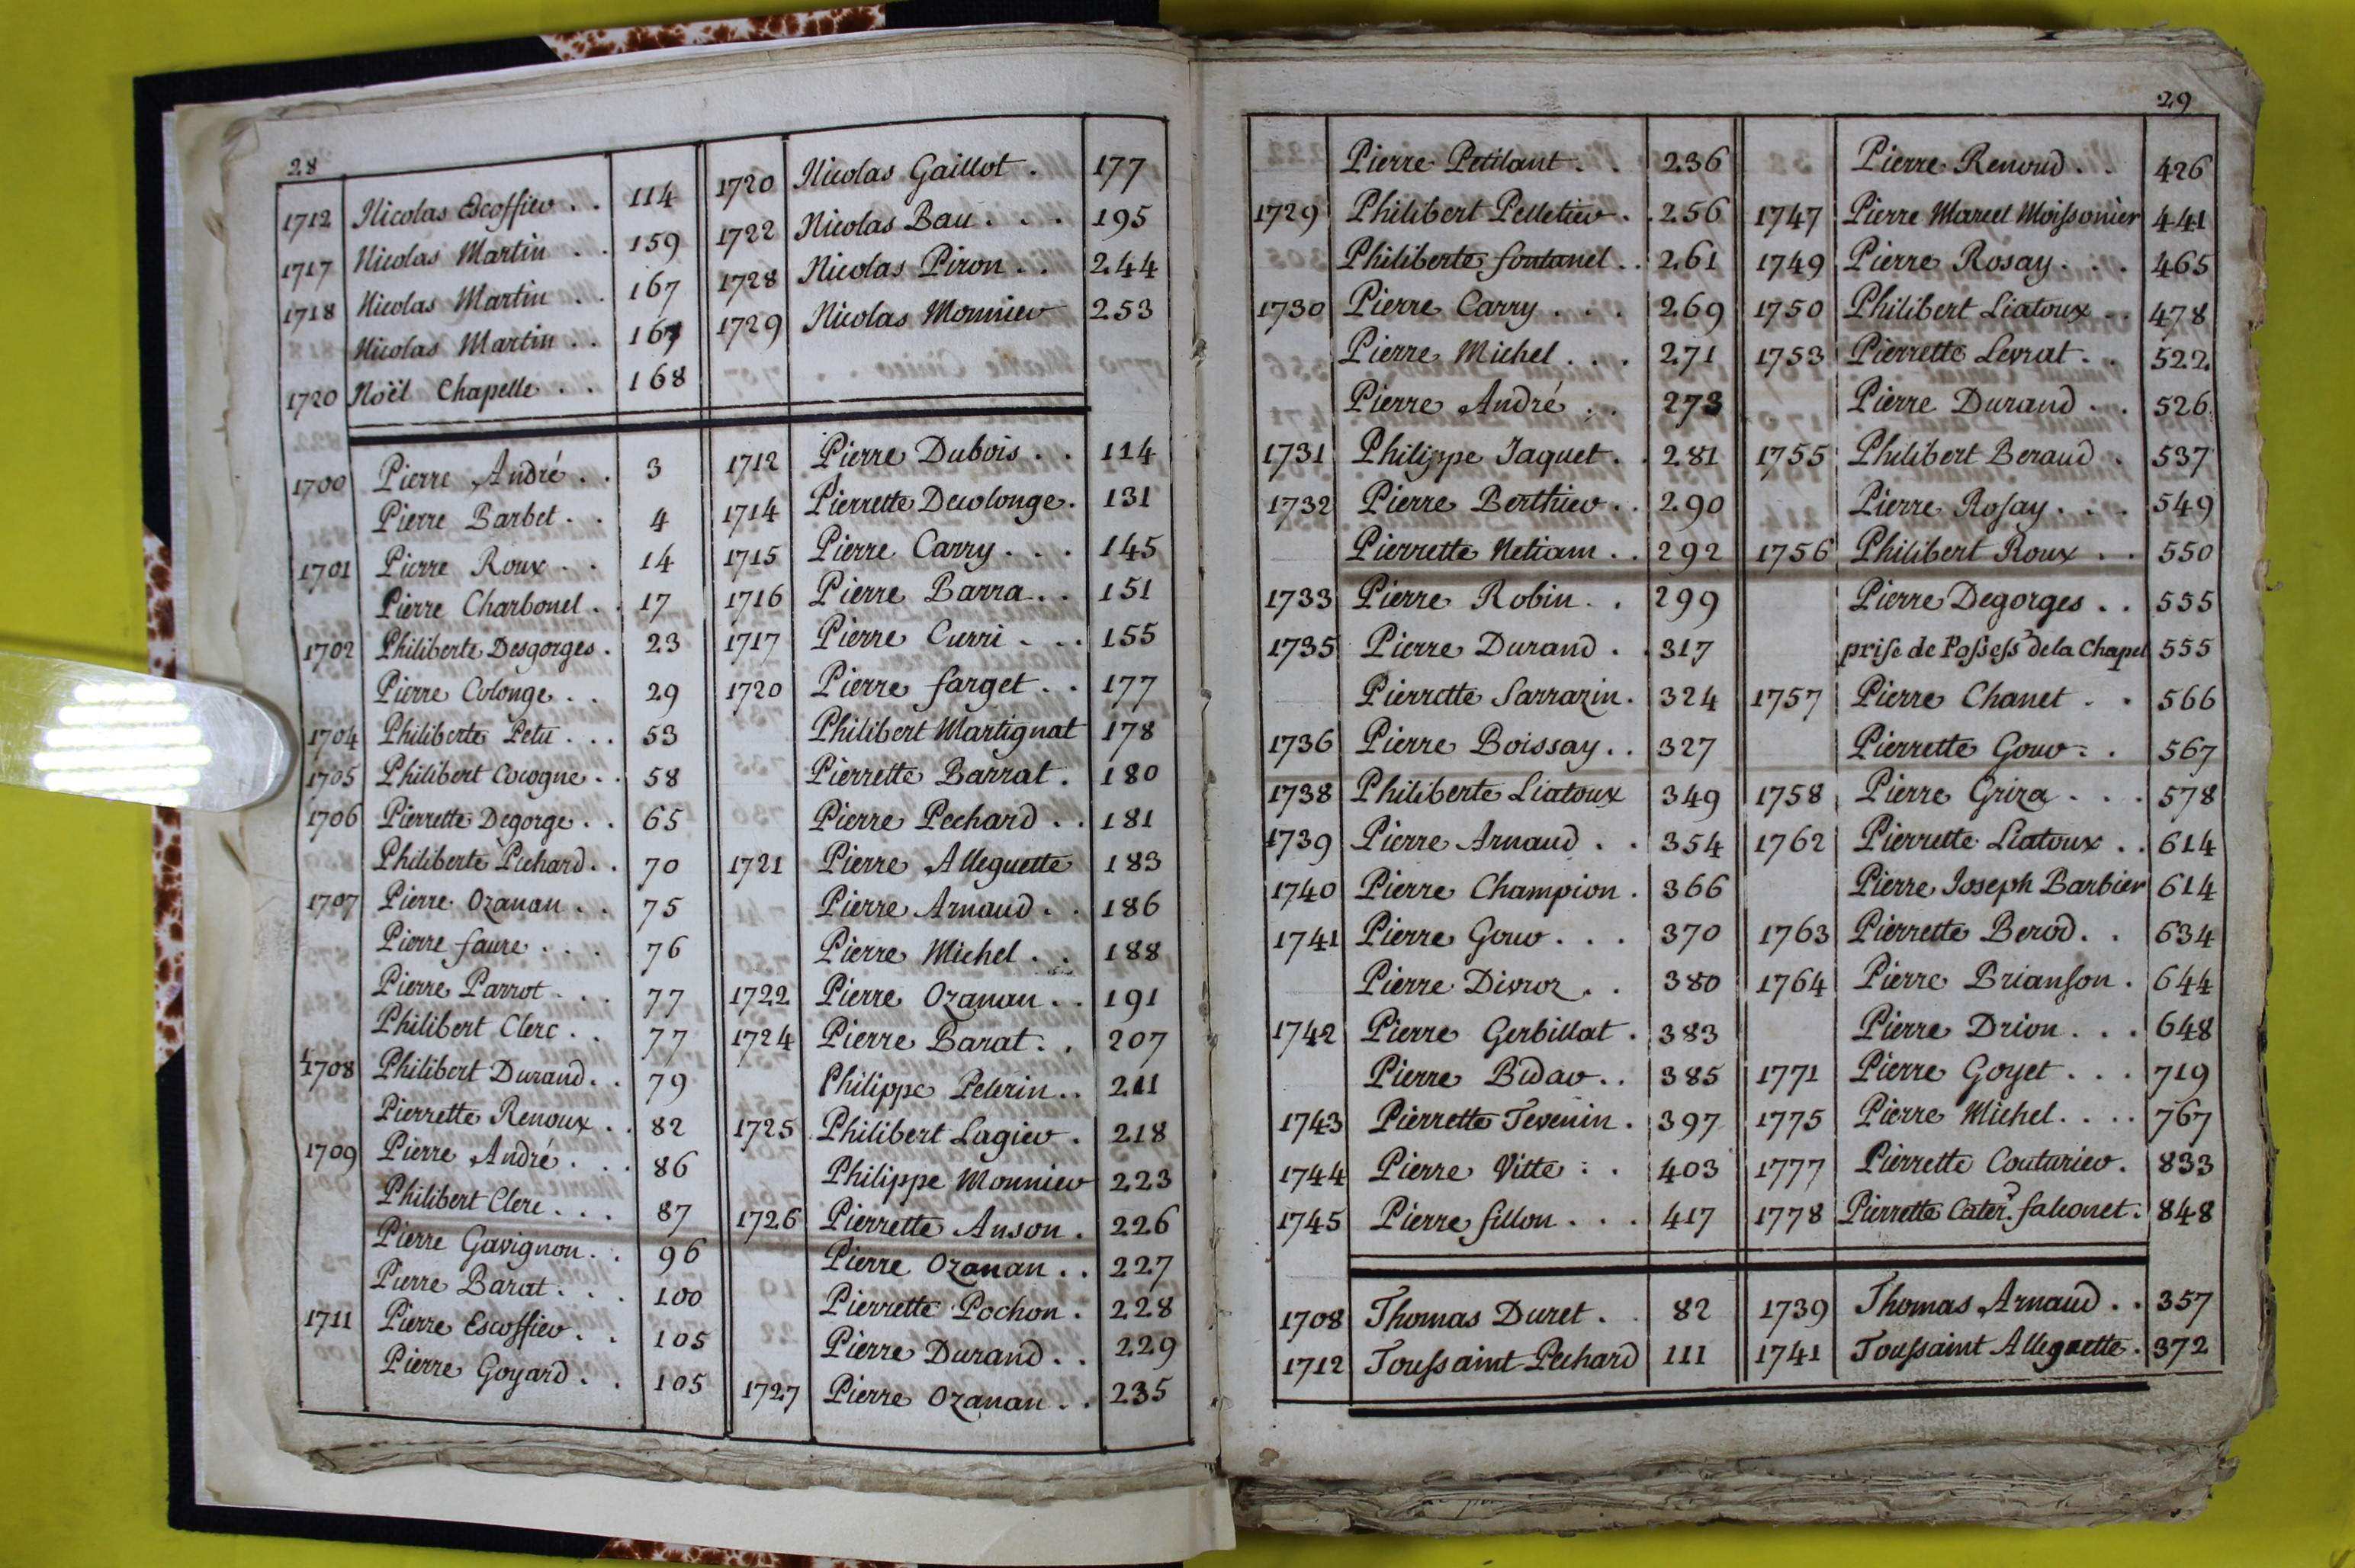 28
1712 Nicolas Escoffier . . 114
1717 Nicolas Martin . . 159
1718 Nicolas Martin . . 167
Nicolas Martin . . 167
1720 Noël Chapelle . . 168
1720 Nicolas Gaillot . 177
1722 Nicolas Bau . . . 195
1728 Nicolas Piron . . 244
1729 Nicolas Monnier 253
1700 Pierre André . . 3
Pierre Barbet . . 4
1701 Pierre Roux . . 14
Pierre Charbonel . . 17
1702 Philiberte Desgorges . 23
Pierre Colonge . . 29
1704 Philiberte Petit . . . 53
1705 Philibert Cocogne . . 58
1706 Pierrette Degorge . . 65
Philiberte Pichard . . 70
1707 Pierre Ozanan . . 75
Pierre faure . . . 76
Pierre Parrot . . . 77
Philibert Clerc . . 77
1708 Philibert Durand . . 79
Pierrette Renoux . . 82
1709 Pierre André . . . 86
Philibert Clerc . . . 87
Pierre Gavignon . . 96
Pierre Barat . . . 100
1711 Pierre Escoffier . . 105
Pierre Goyard . . 105
1712 Pierre Dubois . . 114
1714 Pierrette Decolonge . 131
1715 Pierre Carry . . . 145
1716 Pierre Barra . . 151
1717 Pierre Curri . . . 155
1720 Pierre farget . . 177
Philibert Martignat 178
Pierrette Barrat . 180
Pierre Pechard . . 181
1721 Pierre Alleguette 183
Pierre Arnaud . . 186
Pierre Michel . . 188
1722 Pierre Ozanan . . 191
1724 Pierre Barat . . 207
Philippe Pelerin . . 211
1725 Philibert Lagier . 218
Philippe Monnier 223
1726 Pierrette Anson . 226
Pierre Ozanan . . 227
Pierrette Pochon . 228
Pierre Durand . . 229
1727 Pierre Ozanan . . 235
29
Pierre Petilant . . 236
1729 Philibert Pelletier . . 256
Philiberte fontanel . . 261
1730 Pierre Carry . . . 269
Pierre Michel . . . 271
Pierre André . . 273
1731 Philippe Jaquet . . 281
1732 Pierre Berthier . . 290
Pierrette Netiam . . 292
1733 Pierre Robin . . 299
1735 Pierre Durand . . 317
Pierrette Sarrazin . 324
1736 Pierre Boissay . . 327
1738 Philiberte Liatoux 349
1739 Pierre Arnaud . . 354
1740 Pierre Champion . 366
1741 Pierre Gouv . . . 370
Pierre Divroz . . 380
1742 Pierre Gerbillat . 383
Pierre Bidav . . 385
1743 Pierrette Tevenin . 397
1744 Pierre Vitte . . 403
1745 Pierre fillon . . . 417
Pierre Renoud . . 426
1747 Pierre Marcel Moissonier 441
1749 Pierre Rosay . . . 465
1750 Philibert Liatoux . . 478
1753 Pierrette Levrat . . 522
Pierre Durand . . 526
1755 Philibert Beraud . 537
Pierre Rosay . . . 549
1756 Philibert Roux . . 550
Pierre Degorges . . 555
prise de Possess? de la Chapel 555
1757 Pierre Chanet . . 566
Pierrette Gouv . . 567
1758 Pierre Griza . . . 578
1762 Pierrette Liatoux . . 614
Pierre Joseph Barbier 614
1763 Pierrette Berod . . 634
1764 Pierre Brianson . 644
Pierre Drion . . . 648
1771 Pierre Goyet . . . 719
1775 Pierre Michel . . . . 767
1777 Pierrette Couturier . 833
1778 Pierrette Cater? falconet . 848
1708 Thomas Duret . 82
1712 Toussaint Pechard 111
1739 Thomas Arnaud . . 357
1741 Toussaint Alleguette . 372